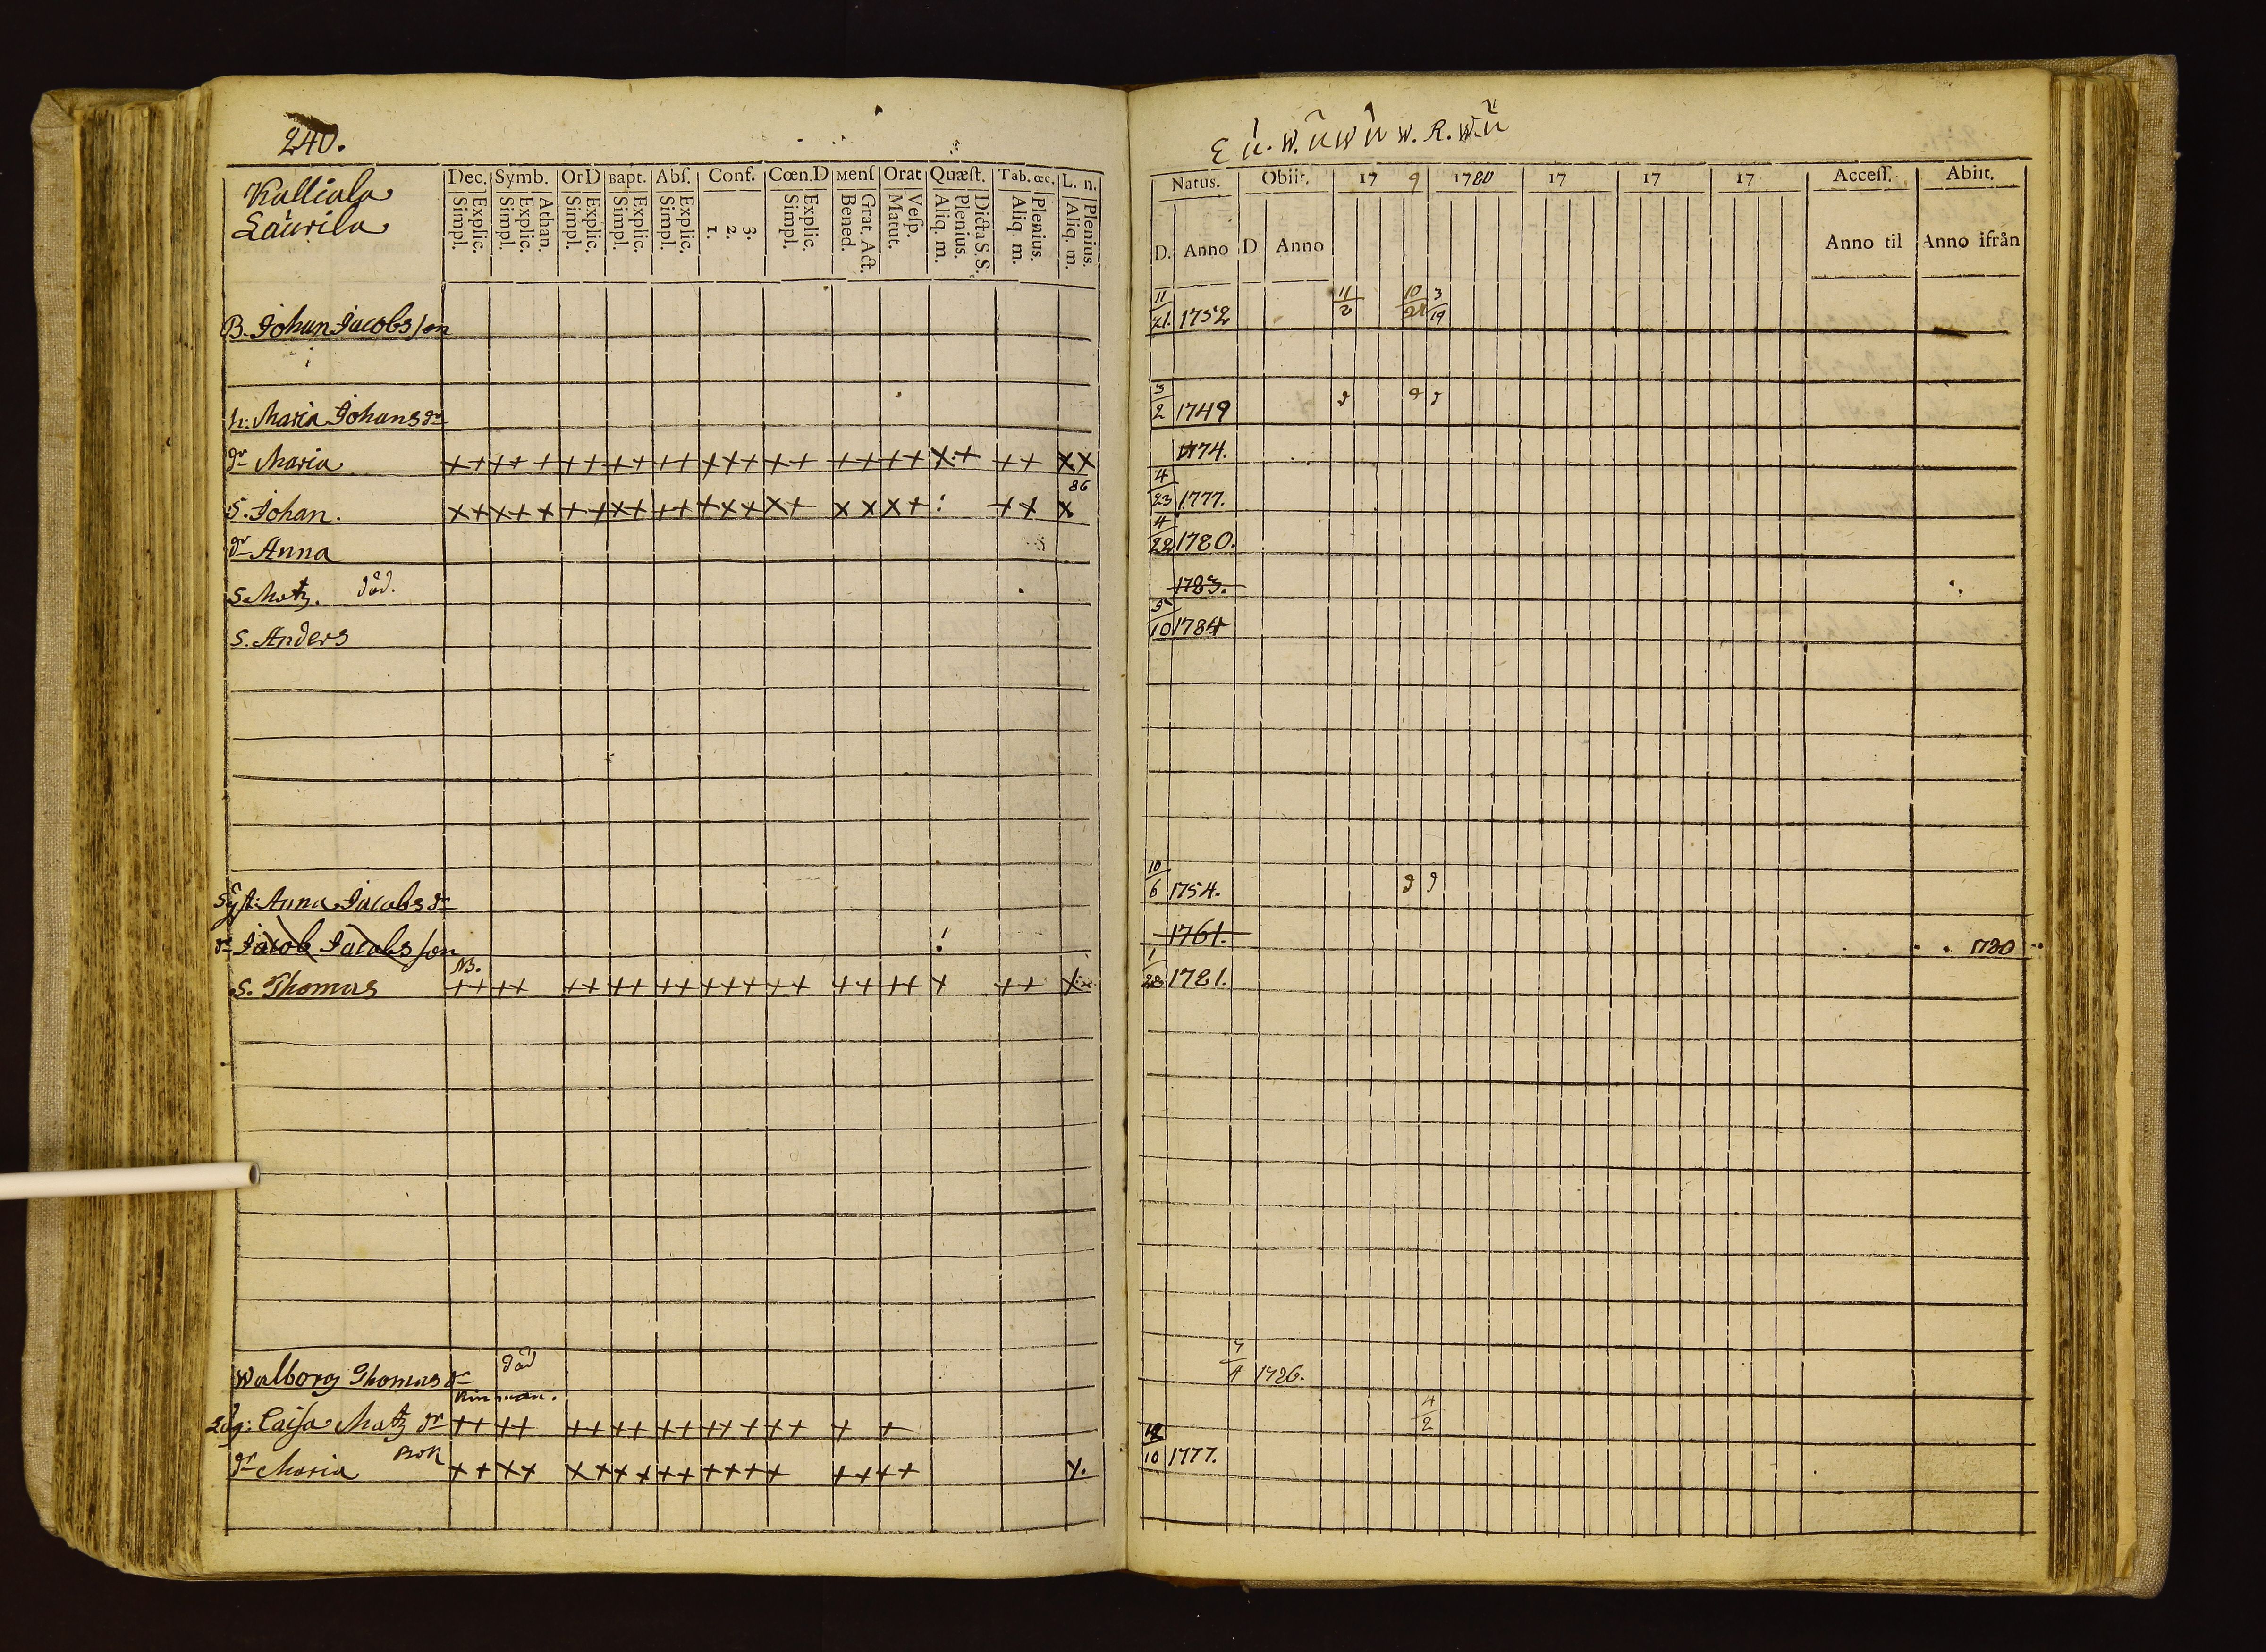 240.
Kalliala
Laurila
Dec. Symb. OrD Bapt. Abs. Conf. Cœn.D Mens Orat Quæst. Tab. œc. L. n.
Explic. Simpl. Athan. Explic. Simpl. Explic. Simpl. Explic. Simpl. Explic. Simpl. 3. 2. 1. Explic. Simpl. Grat. Act. Bened. Vesp. Matut. Dicta S. S. Plenius. Aliq. m. Plenius. Aliq. m. Plenius. Aliq. m.
B. Johan Jacobsson
h: Maria Johansdr
dr Maria ++ +++ ++ ++ ++ +++ ++ ++ ++ x:+ ++ xx
86
S. Johan. x+ x+x ++ x+ ++ +xx x+ xx x+ : ++ x
dr Anna
S Matz. död.
S. Anders
Syst: Anna Jacobsdr
dr Jacob Jacobsson !
NB.
S. Thomas ++ ++ ++ ++ ++ +++ ++ ++ ++ + ++ x
Walborg Thomasdr död
Caisa Matz dr ++ ++ ++ ++ ++ +++ ++ + +
dr Maria Bok ++ ++ x+ ++ ++ +++ + ++ ++ x.
Natus. Obiit. 17 9 1780 17 17 17 Access. Abiit.
D. Anno D Anno Anno til Anno ifrån
11/21. 1752 11/2 10/21 3/19
3/2 1749
1774.
4/23 1777.
4/22 1780.
1783.
5/10 1784
10/6 1754.
1761. 1780
1/23 1781.
7/4 1786.
4/2
12/10 1777.